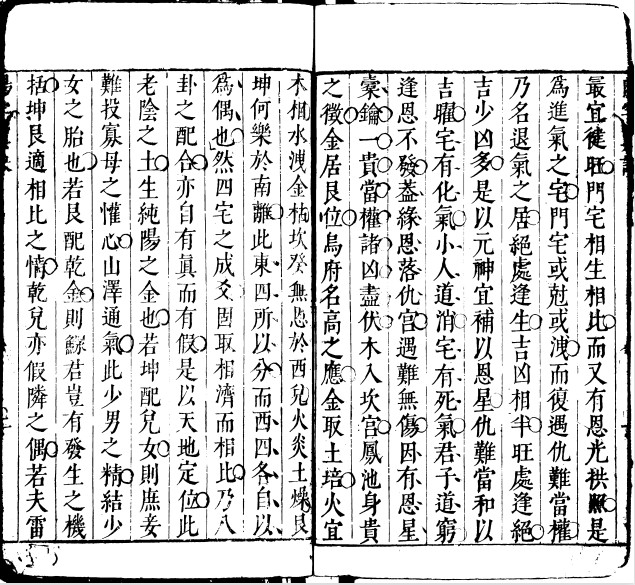 最宜健旺門宅相生相比而又有恩光拱照是
爲進氣之宅門宅或尅或洩而復遇仇難當權
乃名退氣之居絕處逢生吉凶相半旺處逢絕
吉少凶多是以元神宜補以恩星仇難當和以
吉曜宅有化氣小人道消宅有死氣君子道窮
逢恩不發葢緣恩落仇宫遇難無傷因有恩星
槖鑰一貴當權諸凶盡伏木入坎宫鳳池身貴
之徵金居艮位烏府名高之應金取土培火宜
木相水洩金枯坎癸無恩於西兒火炎土燥艮
坤何樂於南離此東四所以分而西四各自以
爲偶也然四宅之成爻固取相濟而相比乃八
卦之配合亦自有眞而有假是以天地定位此
老陰之土生純陽之金也若坤配兒女則庶妾
難投寡母之懽心山澤通氣此少男之精結少
女之胎也若艮配乾金則蘇君豈有發生之機
括坤艮適相比之情乾兒亦假隣之偶若夫雷